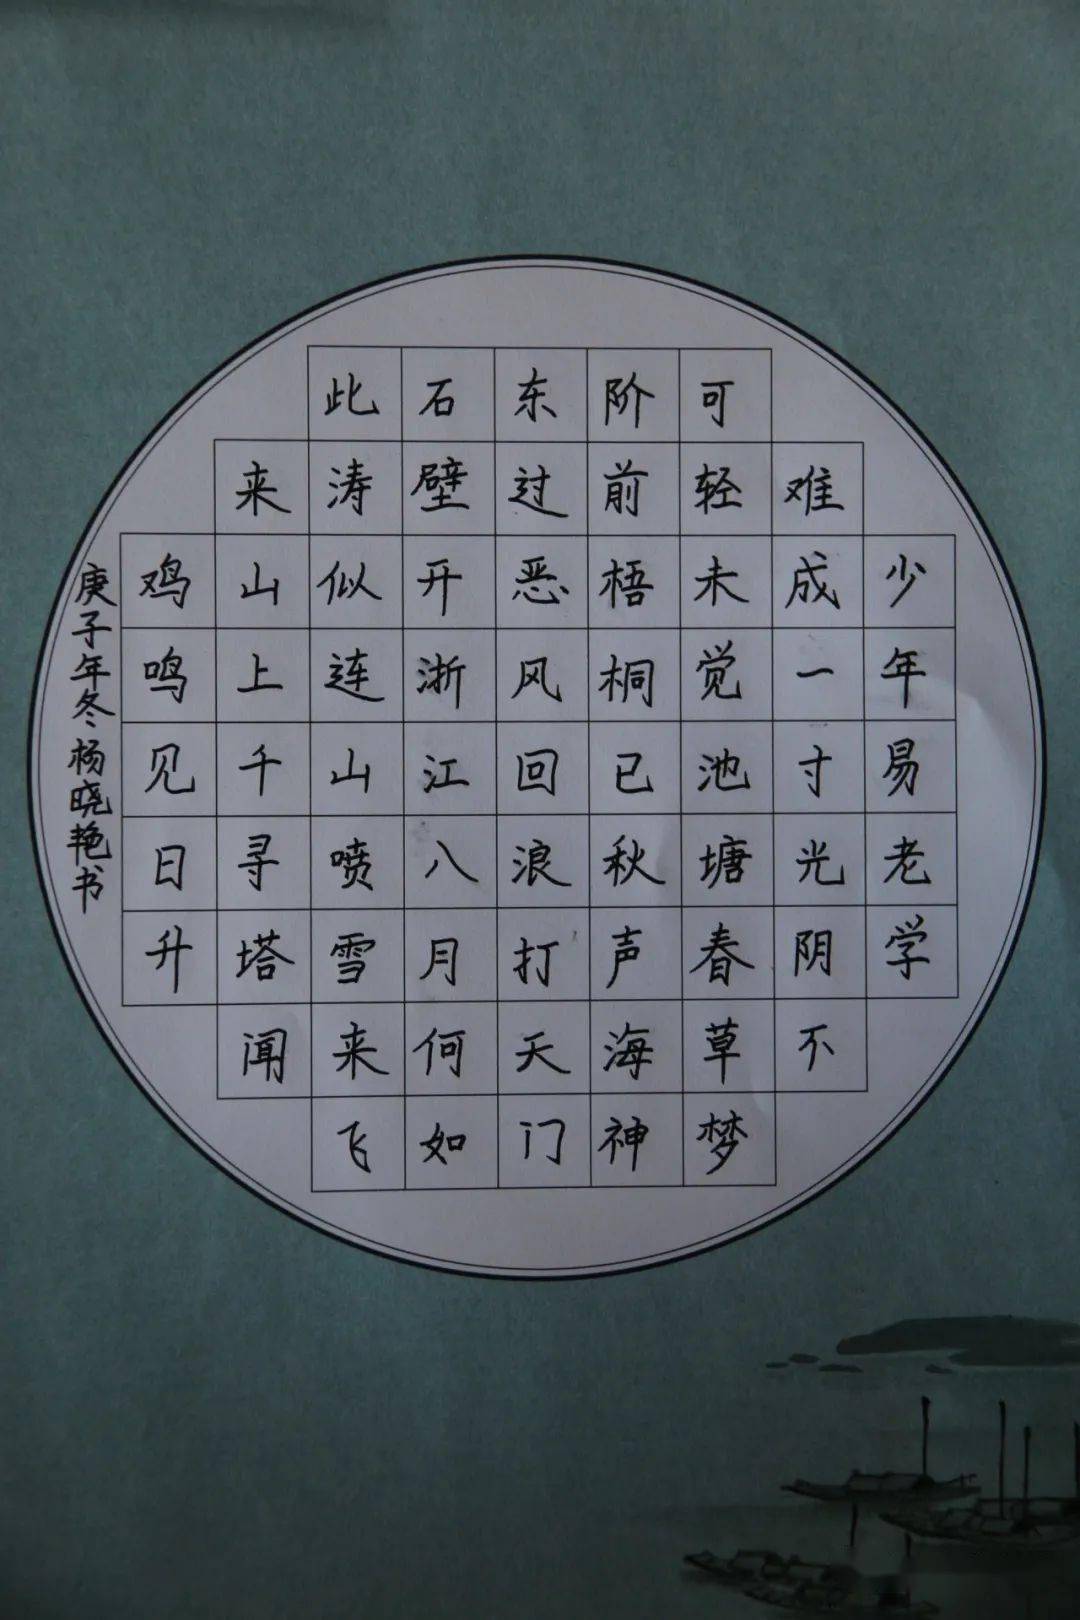 少年易老学
难成一寸光阴不
可轻未觉池塘春草梦
阶前梧桐已秋声海神
东过恶风回浪打天门
石壁开浙江八月何如
此涛似连山喷雪来飞
来山上千寻塔闻
鸡鸣见日升
庚子年冬杨晓艳书